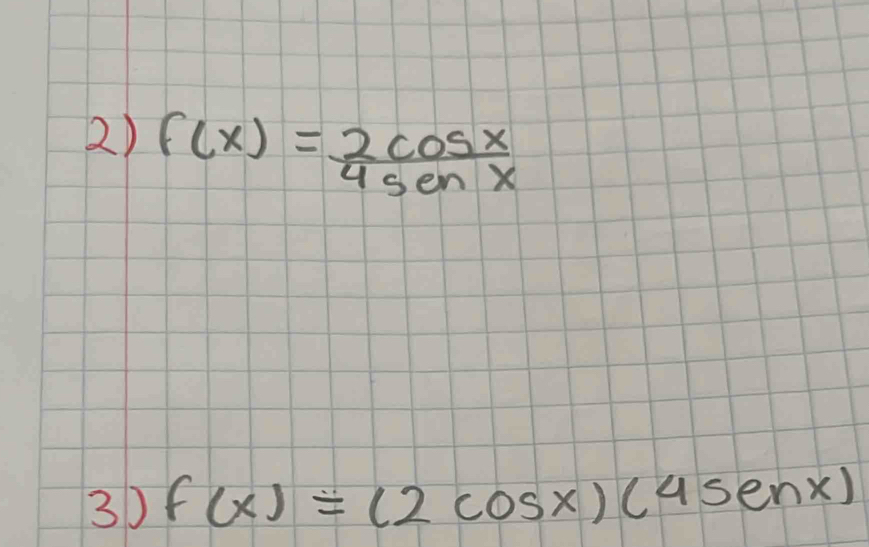 2) f(x) = 2 cos x
4 sen x
3) f(x) = (2 cosx) (4 senx)